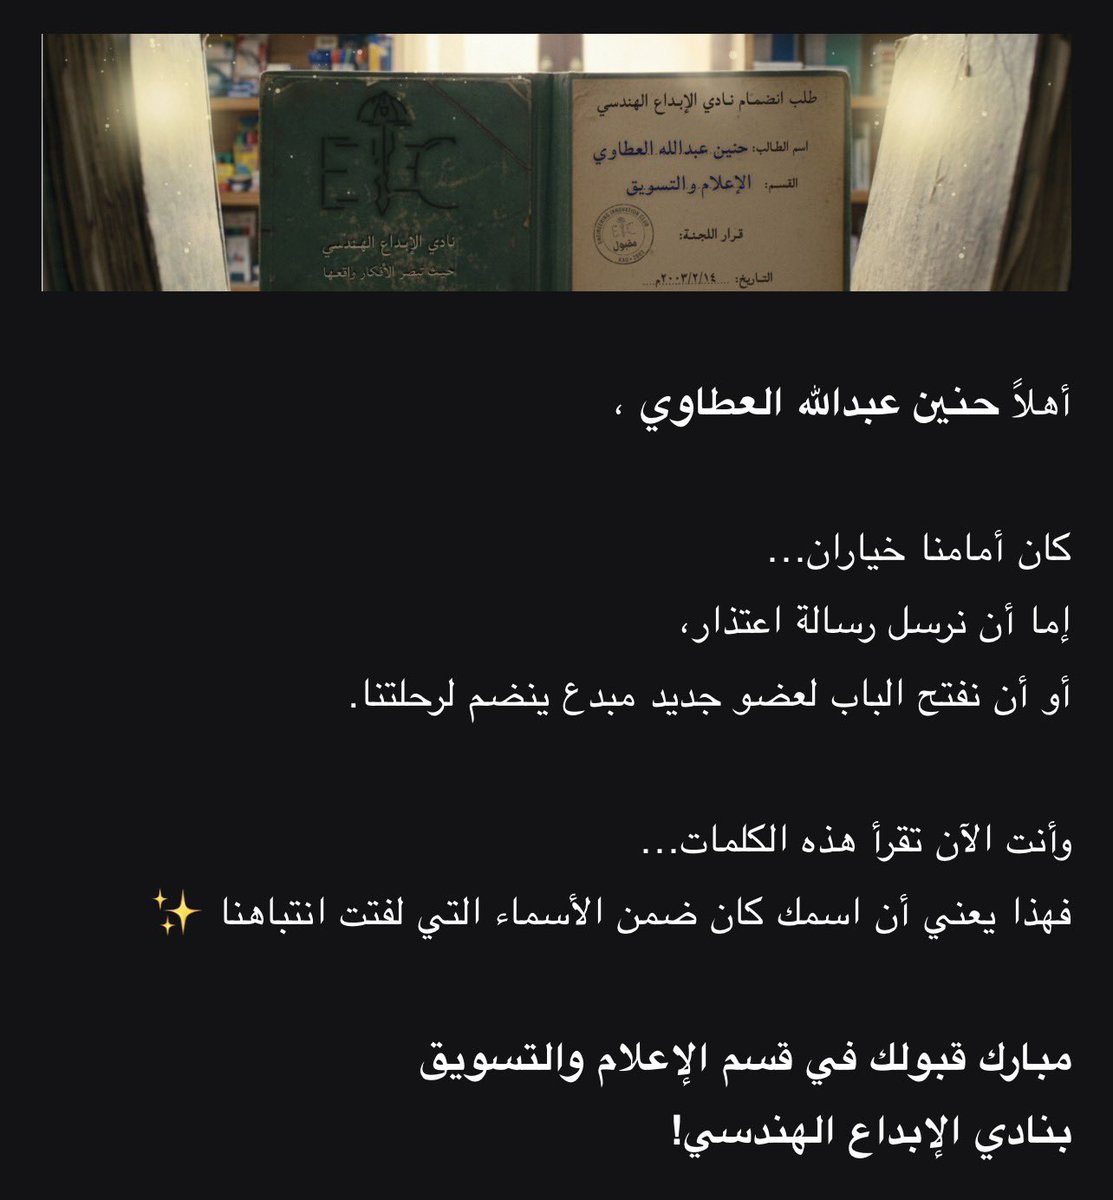 EIC
نادي الإبداع الهندسي
حيث تبصر الأفكار واقعها
طلب انضمام نادي الإبداع الهندسي
اسم الطالب: حنين عبدالله العطاوي
القسم: الإعلام والتسويق
قرار اللجنة:
ENGINEERING INNOVATION CLUB
EIC
مقبول
KAU • 2003
التاريخ: ٢٠٠٣/٢/١٤م
أهلاً حنين عبدالله العطاوي ،
كان أمامنا خياران...
إما أن نرسل رسالة اعتذار،
أو أن نفتح الباب لعضو جديد مبدع ينضم لرحلتنا.
وأنت الآن تقرأ هذه الكلمات...
فهذا يعني أن اسمك كان ضمن الأسماء التي لفتت انتباهنا ✨
مبارك قبولك في قسم الإعلام والتسويق
بنادي الإبداع الهندسي!